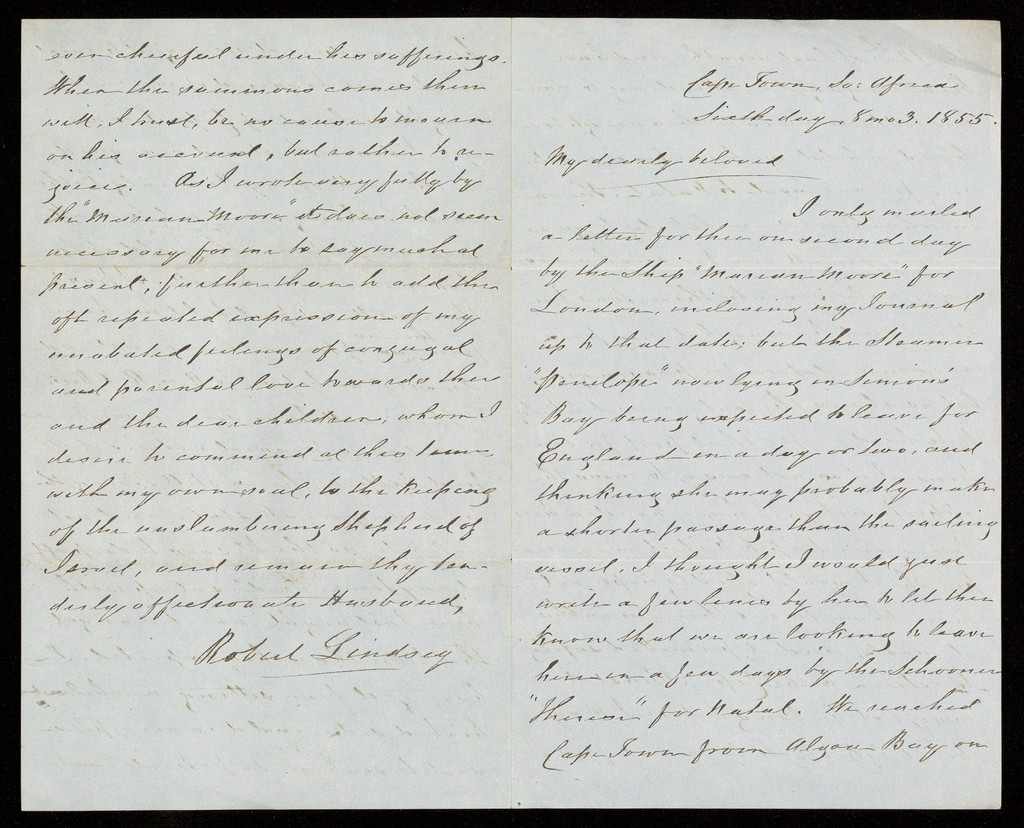 Cape Town, So: Africa
Sixth day, 8 mo 3. 1855.
My dearly beloved
I only mailed
a letter for thee on second day
by the Ship "Marian Moore" for
London, inclosing my Journal
up to that date; but the Steamer
"Penelope" now lying in Simon's
Bay being expected to leave for
England in a day or two, and
thinking she may probably make
a shorter passage than the sailing
vessel, I thought I would just
write a few lines by her to let thee
know that we are looking to leave
here in a few days by the Schooner
"Therese" for Natal. We reached
Cape Town from Algoa Bay on
even cheerful under his sufferings.
When the summons comes there
will, I trust, be no cause to mourn
on his account, but rather to re-
joice. As I wrote very fully by
the "Marian Moore" it does not seem
necessary for me to say much at
present, further than to add the
oft repeated expression of my
unabated feelings of conjugal
and parental love towards thee
and the dear children, whom I
desire to commend at this time
with my own soul, to the keeping
of the unslumbering Shepherd of
Israel, and remain thy ten-
derly affectionate Husband,
Robert Lindsey